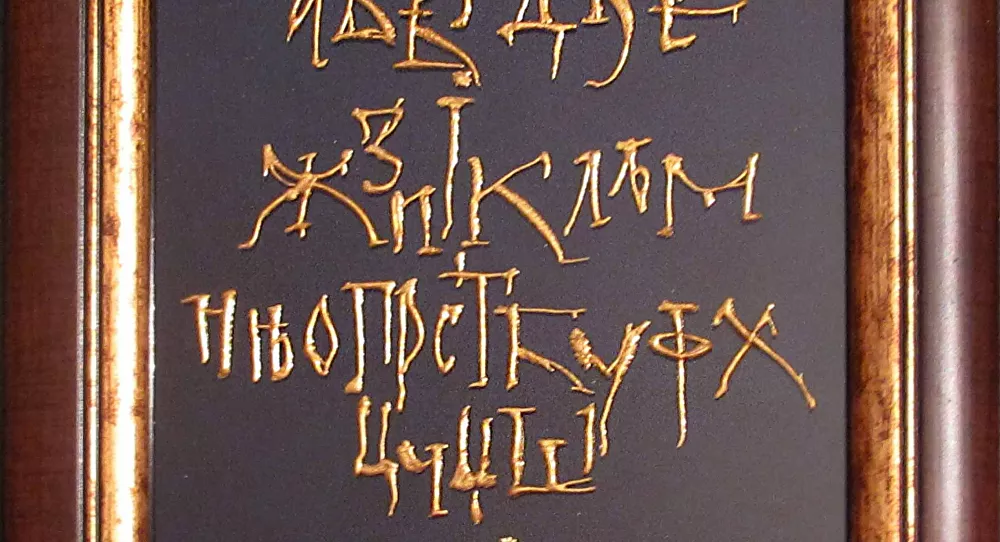 АБВГДЂЕ
ЖЗИЈКЛЉМ
НЊОПРСТЋУФХ
ЦЧЏШ